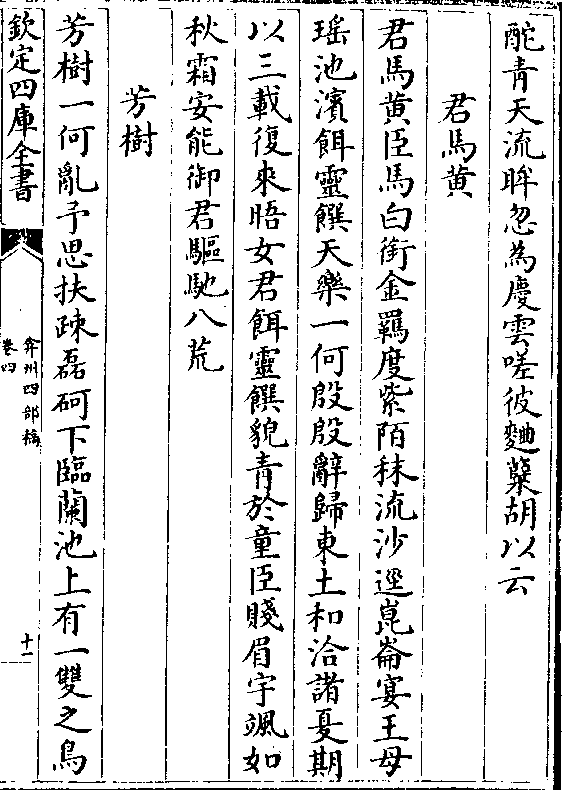 酡青天流眸忽為慶雲嗟彼麴蘖胡以云
君馬黄
君馬黄臣馬白銜金羈度紫陌秣流沙逕崑崙宴王母
瑤池濱餌靈饌天樂一何殷殷辭歸東土和洽諸夏期
以三載復來晤女君餌靈饌貌青於童臣賤眉宇颯如
秋霜安能御君驅馳八荒
芳樹
芳樹一何亂予思扶疎磊砢下臨蘭池上有一雙之鳥
欽定四庫全書
弇州四部稿
卷四
十一